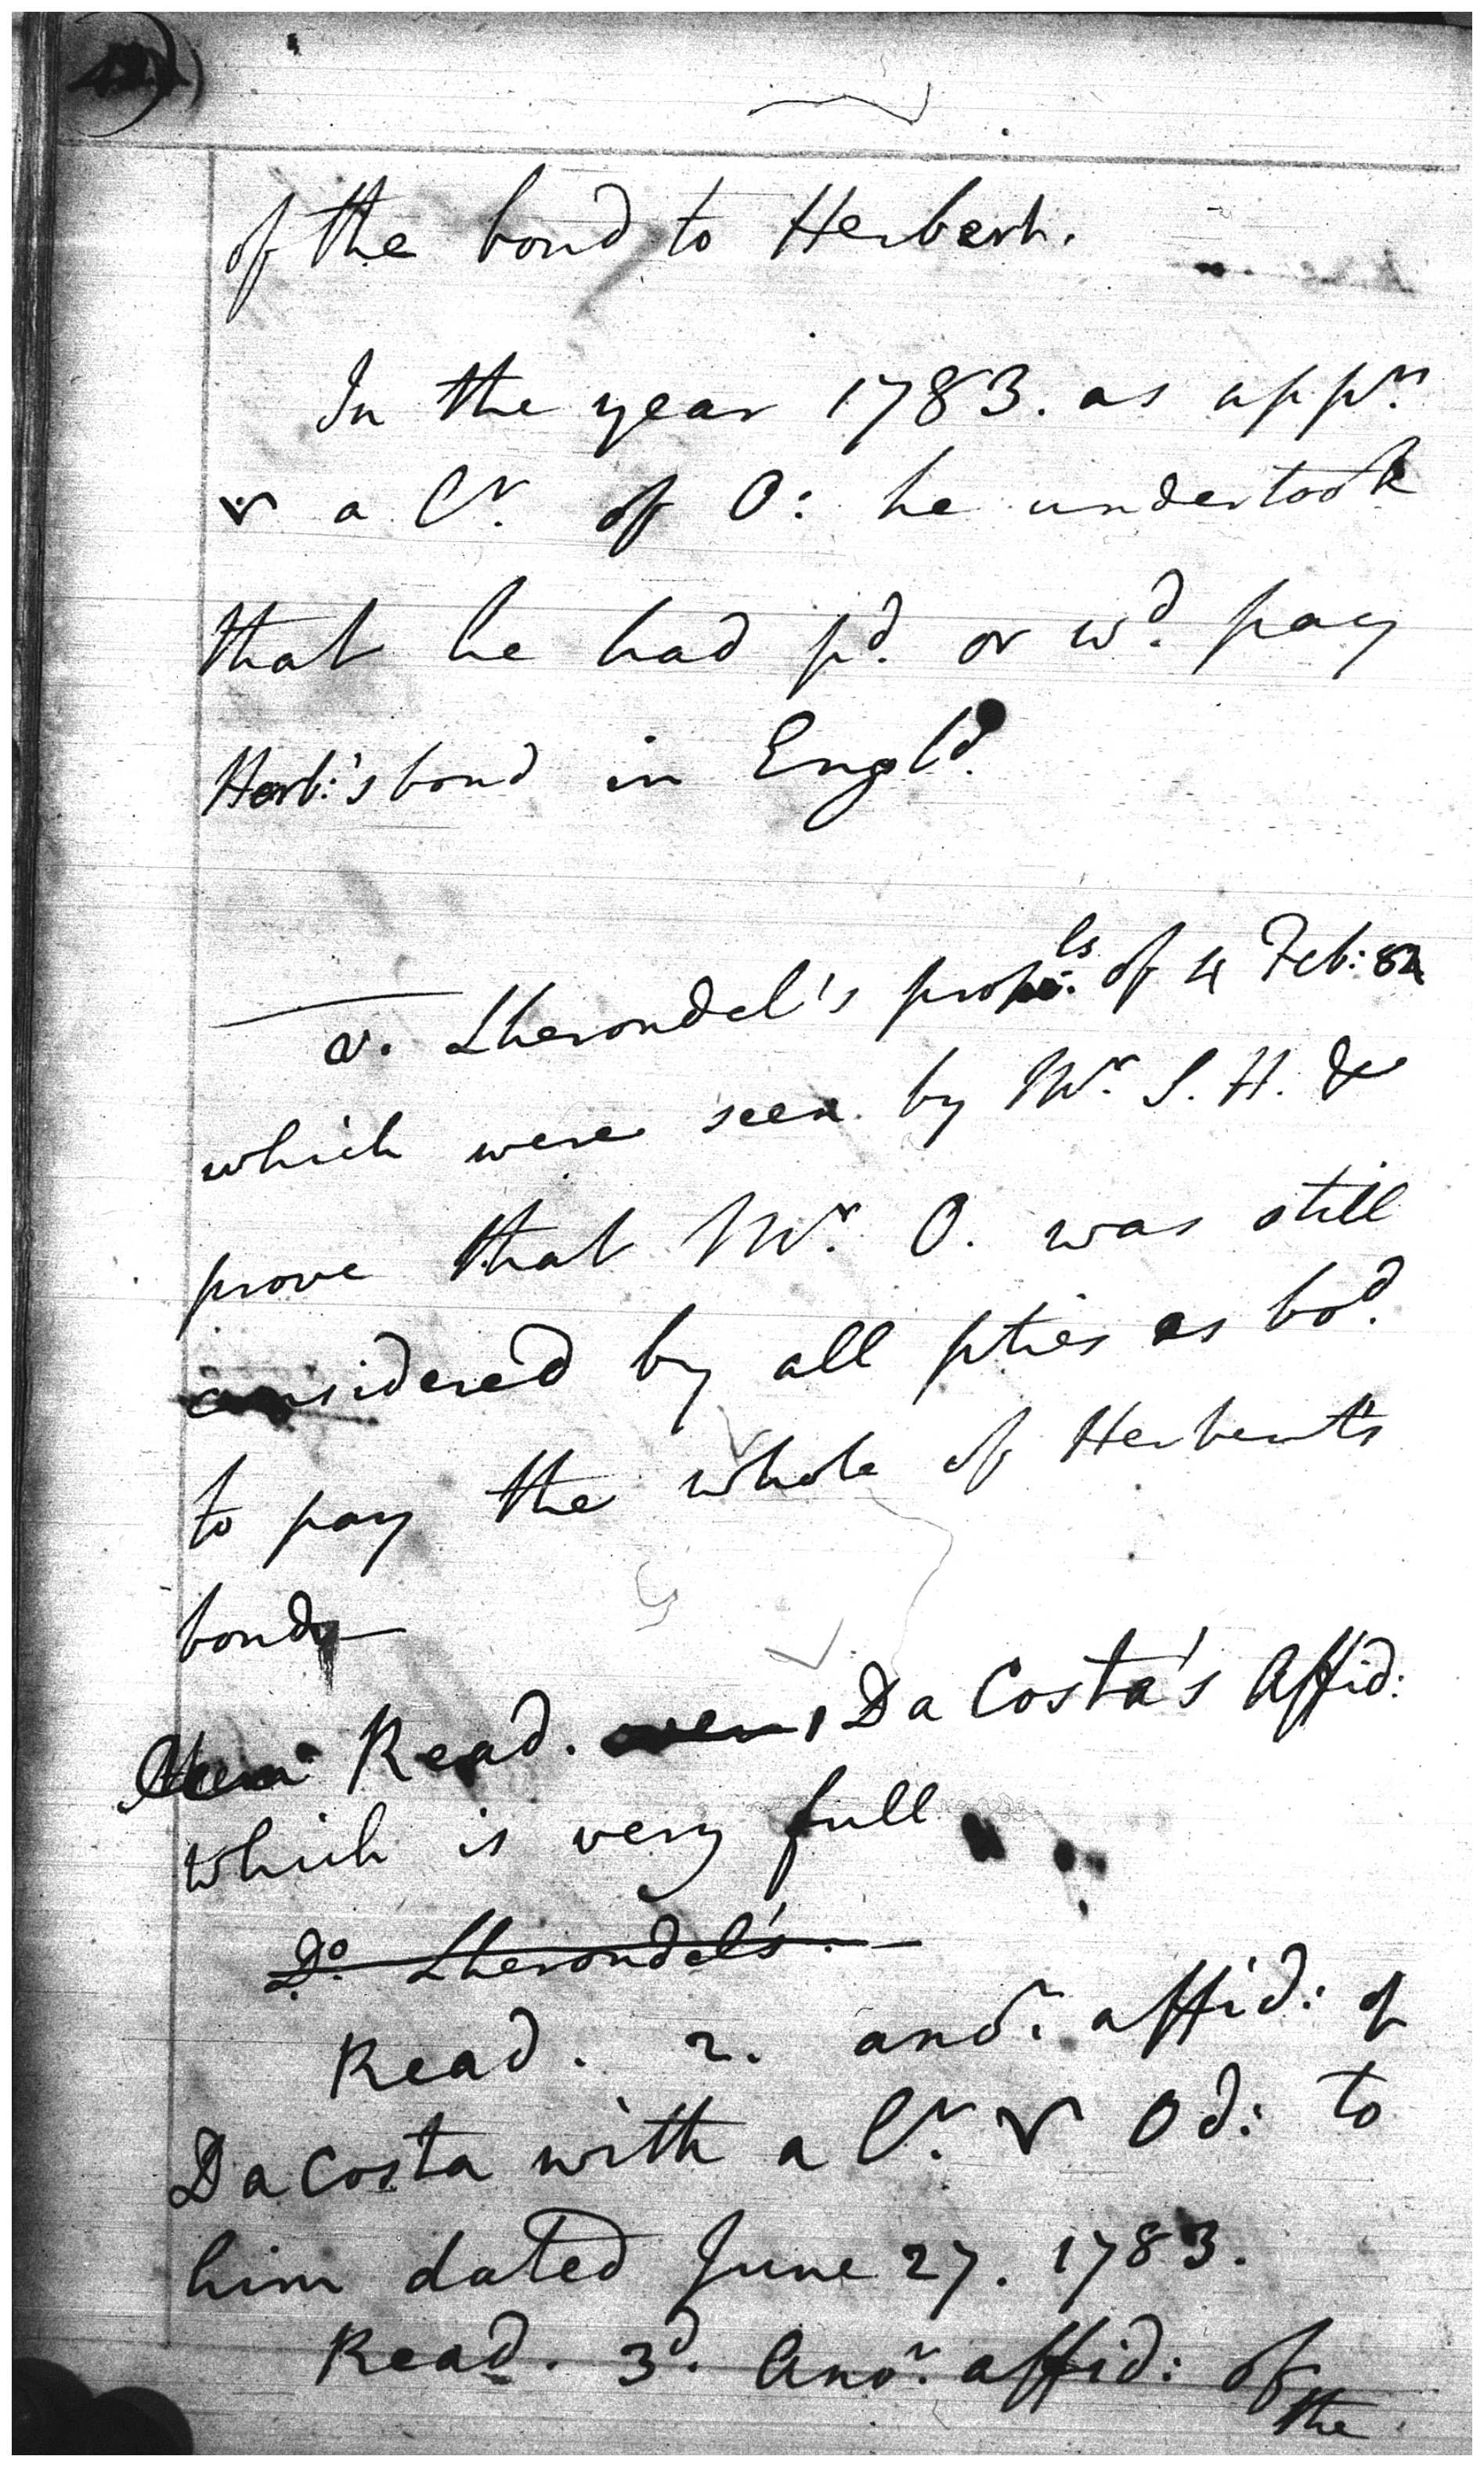 of the bond to Herbert.
In the year 1783. as apprs.
a Lr. of O: he undertook
that he had pd. or wd. pay
Herb:'s bond in Engld.
v. Lherondel's propls. of 4 Feb: 84
which were seen by Mr. S. H. &
prove that Mr. O. was still
considered by all pties as bod.
to pay the whole of Herbert's
bond
Read. Da Costa's Affid:
which is very full
Do. Lherondel's.
Read. 2. anor. affid: of
DaCosta with a Lr. Od: to
him dated June 27. 1783.
Read. 3d. Anor. affid: of
the